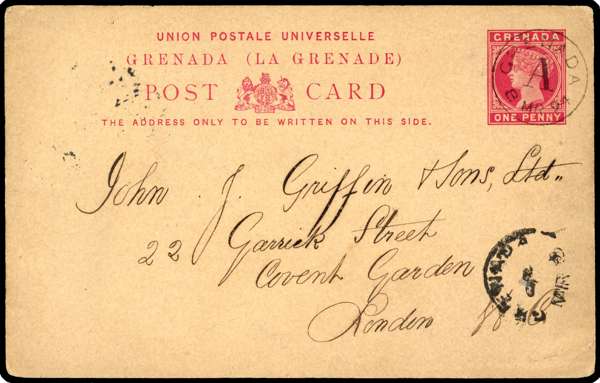 UNION POSTALE UNIVERSELLE
GRENADA (LA GRENADE)
POST CARD
THE ADDRESS ONLY TO BE WRITTEN ON THIS SIDE.
GRENADA
ONE PENNY
A
John J. Griffin & Sons, Ltd.,
22 Garrick Street
Covent Garden
London